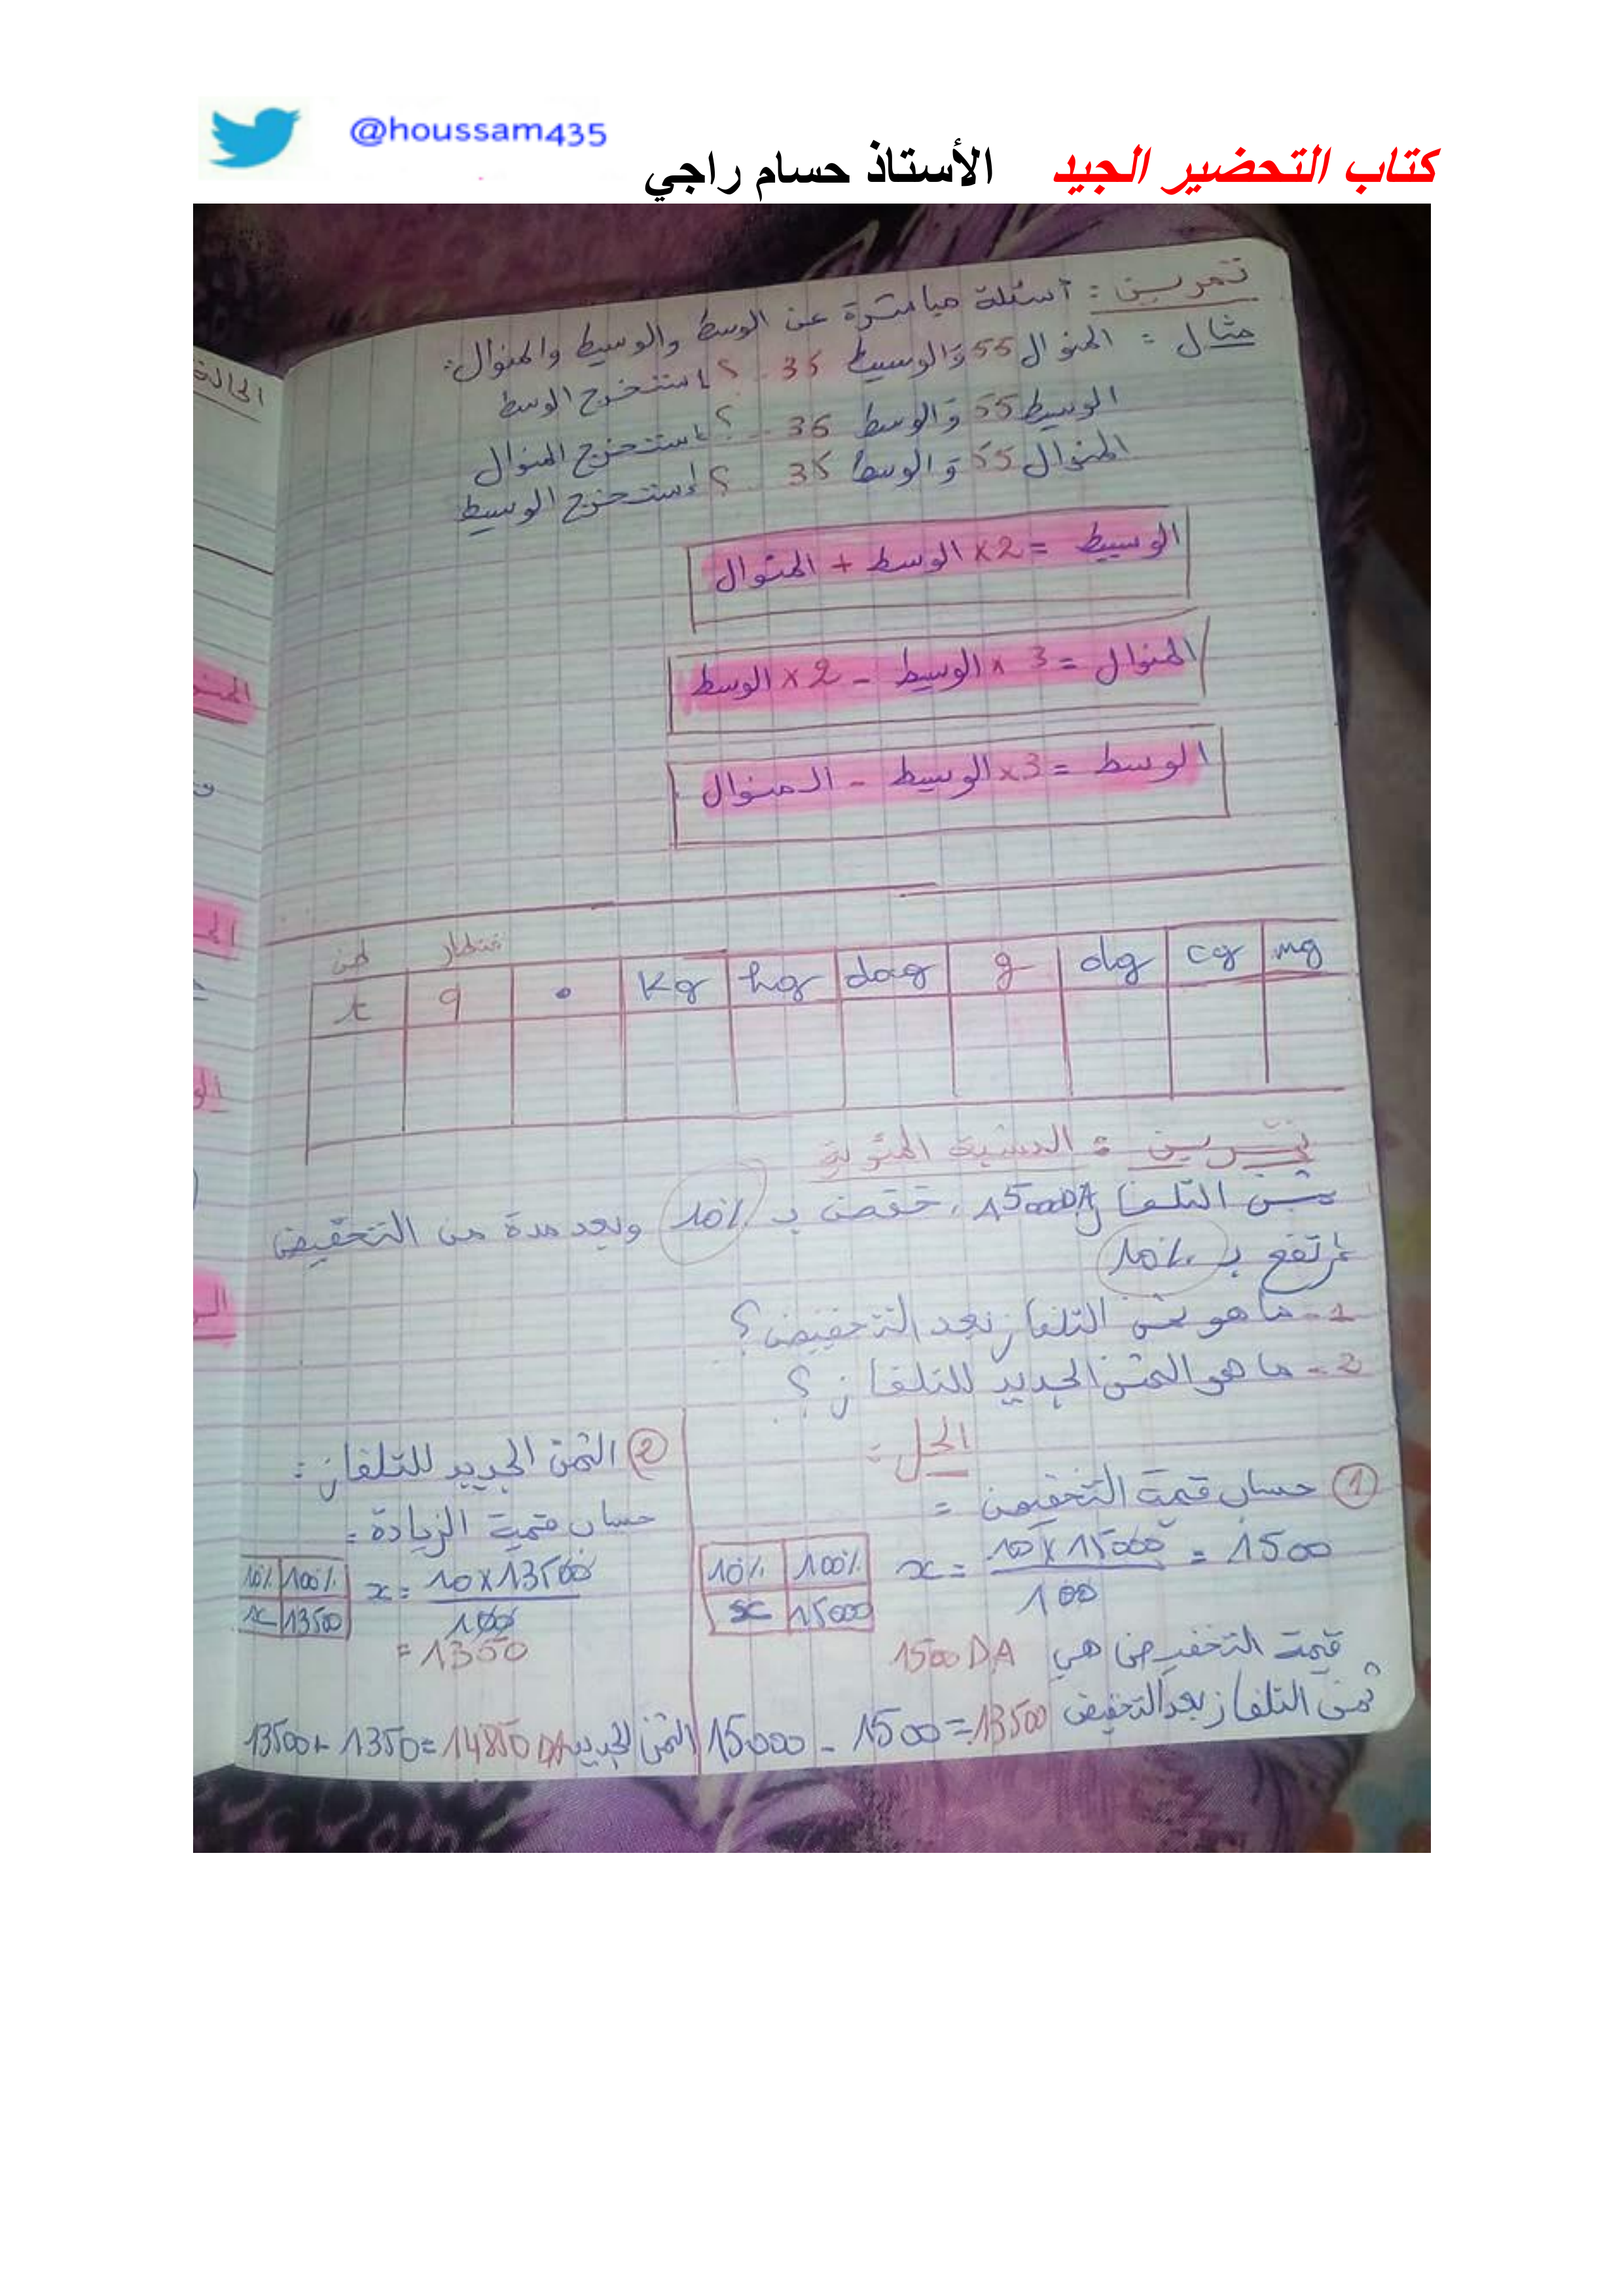 @houssam435
كتاب التحضير الجيد الأستاذ حسام راجي
تمرين : أسئلة مباشرة عن الوسط والوسيط والمنوال :
مثال : المنوال 55 والوسيط 35 .. ؟ استخرج الوسط
الوسيط 55 والوسط 35 .. ؟ استخرج المنوال
المنوال 55 والوسط 35 .. ؟ إستخرج الوسيط
الوسيط = 2 × الوسط + المنوال
المنوال = 3 × الوسيط - 2 × الوسط
الوسط = 3 × الوسيط - المنوال
طن قنطار
t q • Kg hg dag g dg cg mg
تمرين : النسبة المئوية
ثمن التلفاز 15000DA ، خفض بـ 10% وبعد مدة من التخفيض
ارتفع بـ 10%
1 - ما هو ثمن التلفاز بعد التخفيض ؟
2 - ما هو الثمن الجديد للتلفاز ؟
الحل :
1 حساب قيمة التخفيض =
10% 100%
x 15000
x = 10 x 15000 / 100 = 1500
قيمة التخفيض هي 1500 DA
ثمن التلفاز بعد التخفيض
15000 - 1500 = 13500
2 الثمن الجديد للتلفاز :
حساب قيمة الزيادة :
10% 100%
x 13500
x = 10 x 13500 / 100
= 1350
الثمن الجديد 13500 + 1350 = 14850 DA
الحالة